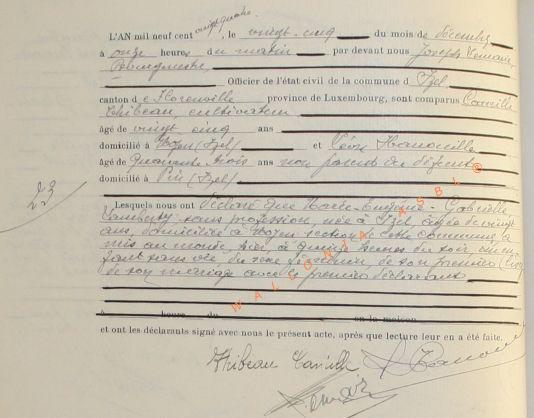 vingt quatre
L'AN mil neuf cent , le vingt cinq du mois de décembre
à onze heures du matin par devant nous Joseph
Bourgmestre
Officier de l'état civil de la commune d' Izel
canton de Florenville province de Luxembourg, sont comparus Camille
Thibeau, cultivateur
âgé de vingt cinq ans
domicilié à Moyen (Izel) et Léon Hanouille
âgé de Quarante trois ans non parent du défunt
domicilié à Pin (Izel)
23
Lesquels nous ont déclaré que Marie-Eugénie-Gabrielle
Lamberty sans profession, née à Izel, âgée de vingt
ans, domiciliée à Moyen section de cette commune a
mis au monde, hier, à quinze heures du soir, un en
fant sans vie, du sexe féminin, de son premier
de son mariage avec le premier déclarant
WALLONIA ASBL ©
à heure du en la maison
et ont les déclarants signé avec nous le présent acte, après que lecture leur en a été faite.
Thibeau Camille Hanouille